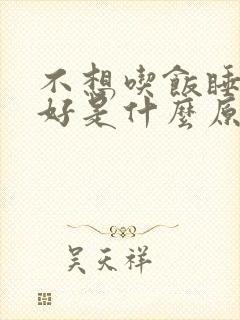 不想喫飯睡
好是什麼原
吴天祥